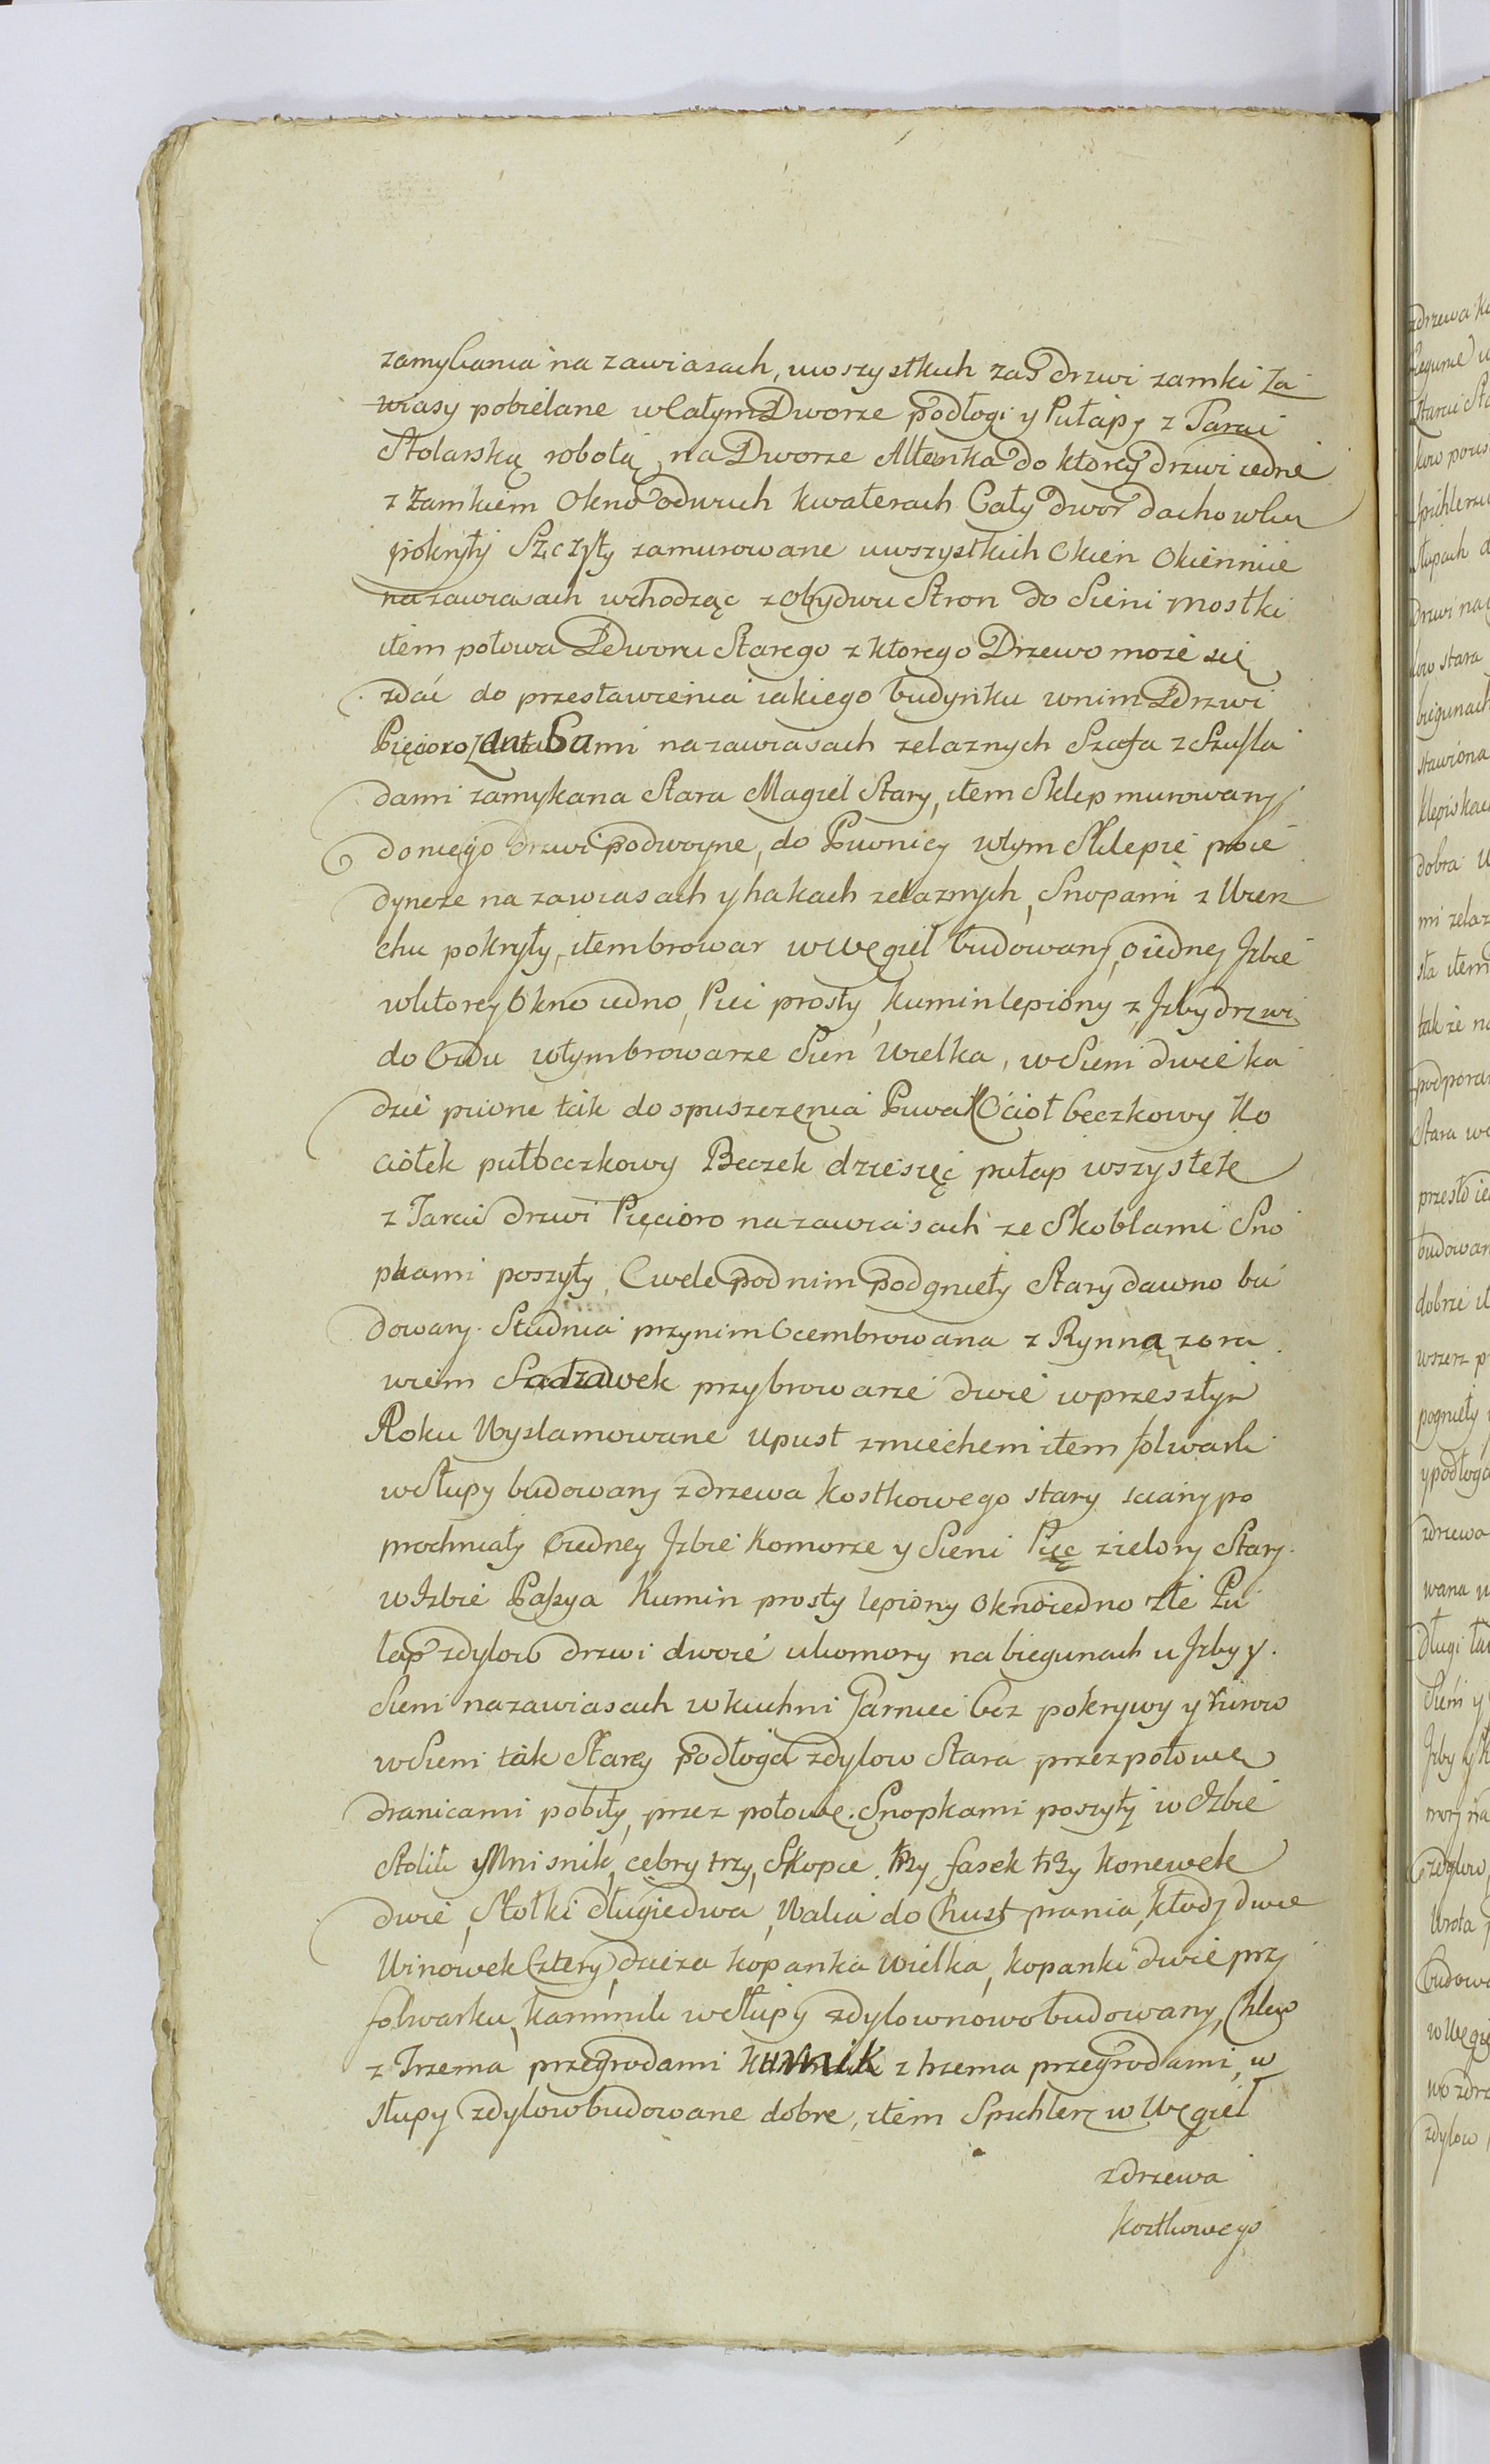 zamykania na zawiasach, uwszystkich zas drzwi zamki Za
wiasy pobielane wCałym Dworze podłogi y Pułapy z Tarcic
Stolarską robotą, na Dworze Altanka do ktorey drzwi iedne
z Zamkiem Okno odwuch kwaterach Cały dwor dachowką
pokryty Szczyty zamurowane uwszystkich Okien Okiennice
na zawiasach wchodząc z obydwu Stron do Sieni mostki
item połowa Dworu Starego z ktorego Drzewo może się
zdać do przestawienia iakiego budynku wnim Drzwi
Pięcioro zantabami na zawiasach zelaznych Szafa z Szufla
dami zamykana Stara Magiel Stary, item Sklep murowany
do niego drzwi podwoyne, do Piwnicy wtym Sklepie poie
dyncze na zawiasach y hakach zelaznych, Snopami z Wierz
chu pokryty, item browar wWęgieł budowany, o iedney Jzbie
wktorey Okno iedno, Piec prosty, kumin lepiony z Jzby drzwi
do Ludu wtym browarze Sien Wielka, wSieni dwie ka
dzie piwne tak do spuszczenia Piwa Kociot beczkowy Ko
ciołek pułbeczkowy Beczek dziesięć pułap wszystek
z Tarcic drzwi Pięcioro na zawiasach ze Skoblami Sno
pkami poszyty, Cwele pod nim podgnieły Stary dawno bu
dowany. Studnia przynim Ocembrowana z Rynną zora
wiem Sadzawek przybrowarze dwie wprzeszłym
Roku Wyszlamowane upust zmiechem item folwark
wSłupy budowany zdrzewa kostkowego stary sciany po
prochniały Oiedney Jzbie Komorze y Sieni Piec zielony Stary
wJzbie Kumin prosty lepiony okno iedno złe Pu
łap zdylow drzwi dwoie ukomory na biegunach u Jzby y
Sieni na zawiasach wkuchni Garniec bez pokrywy y
wSieni tak Starey podłoga zdylow Stara przez połowę
dranicami pobity, przez połowę Snopkami poszyty wJzbie
Stolik y Misnik, cebry trzy, Skopce trzy, fasek trzy konewek
dwie, Stołki długie dwa, Walia do Chust prania, kłody dwie
Winowek Cztery, dzieza kopanka Wielka, kopanki dwie przy
folwarku, karmnik wSłupy zdylow nowo budowany, Chlew
z Trzema przegrodami kurnik z trzema przegrodami, w
słupy zdylow budowane dobre, item Spichlerz w Węgieł
zdrzewa
kostkowego